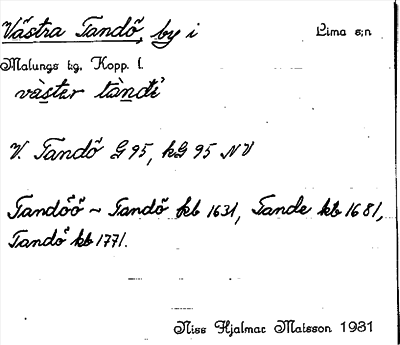 Västra Tandö, by i Lima s:n
Malungs tg, Kopp. l.
vàstər tàndi
V. Tandö G 95, kG 95 NV
Tandöö ~ Tandö kb 1631, Tande kb 1681,
Tandö kb 1771.
Niss Hjalmar Matsson 1931